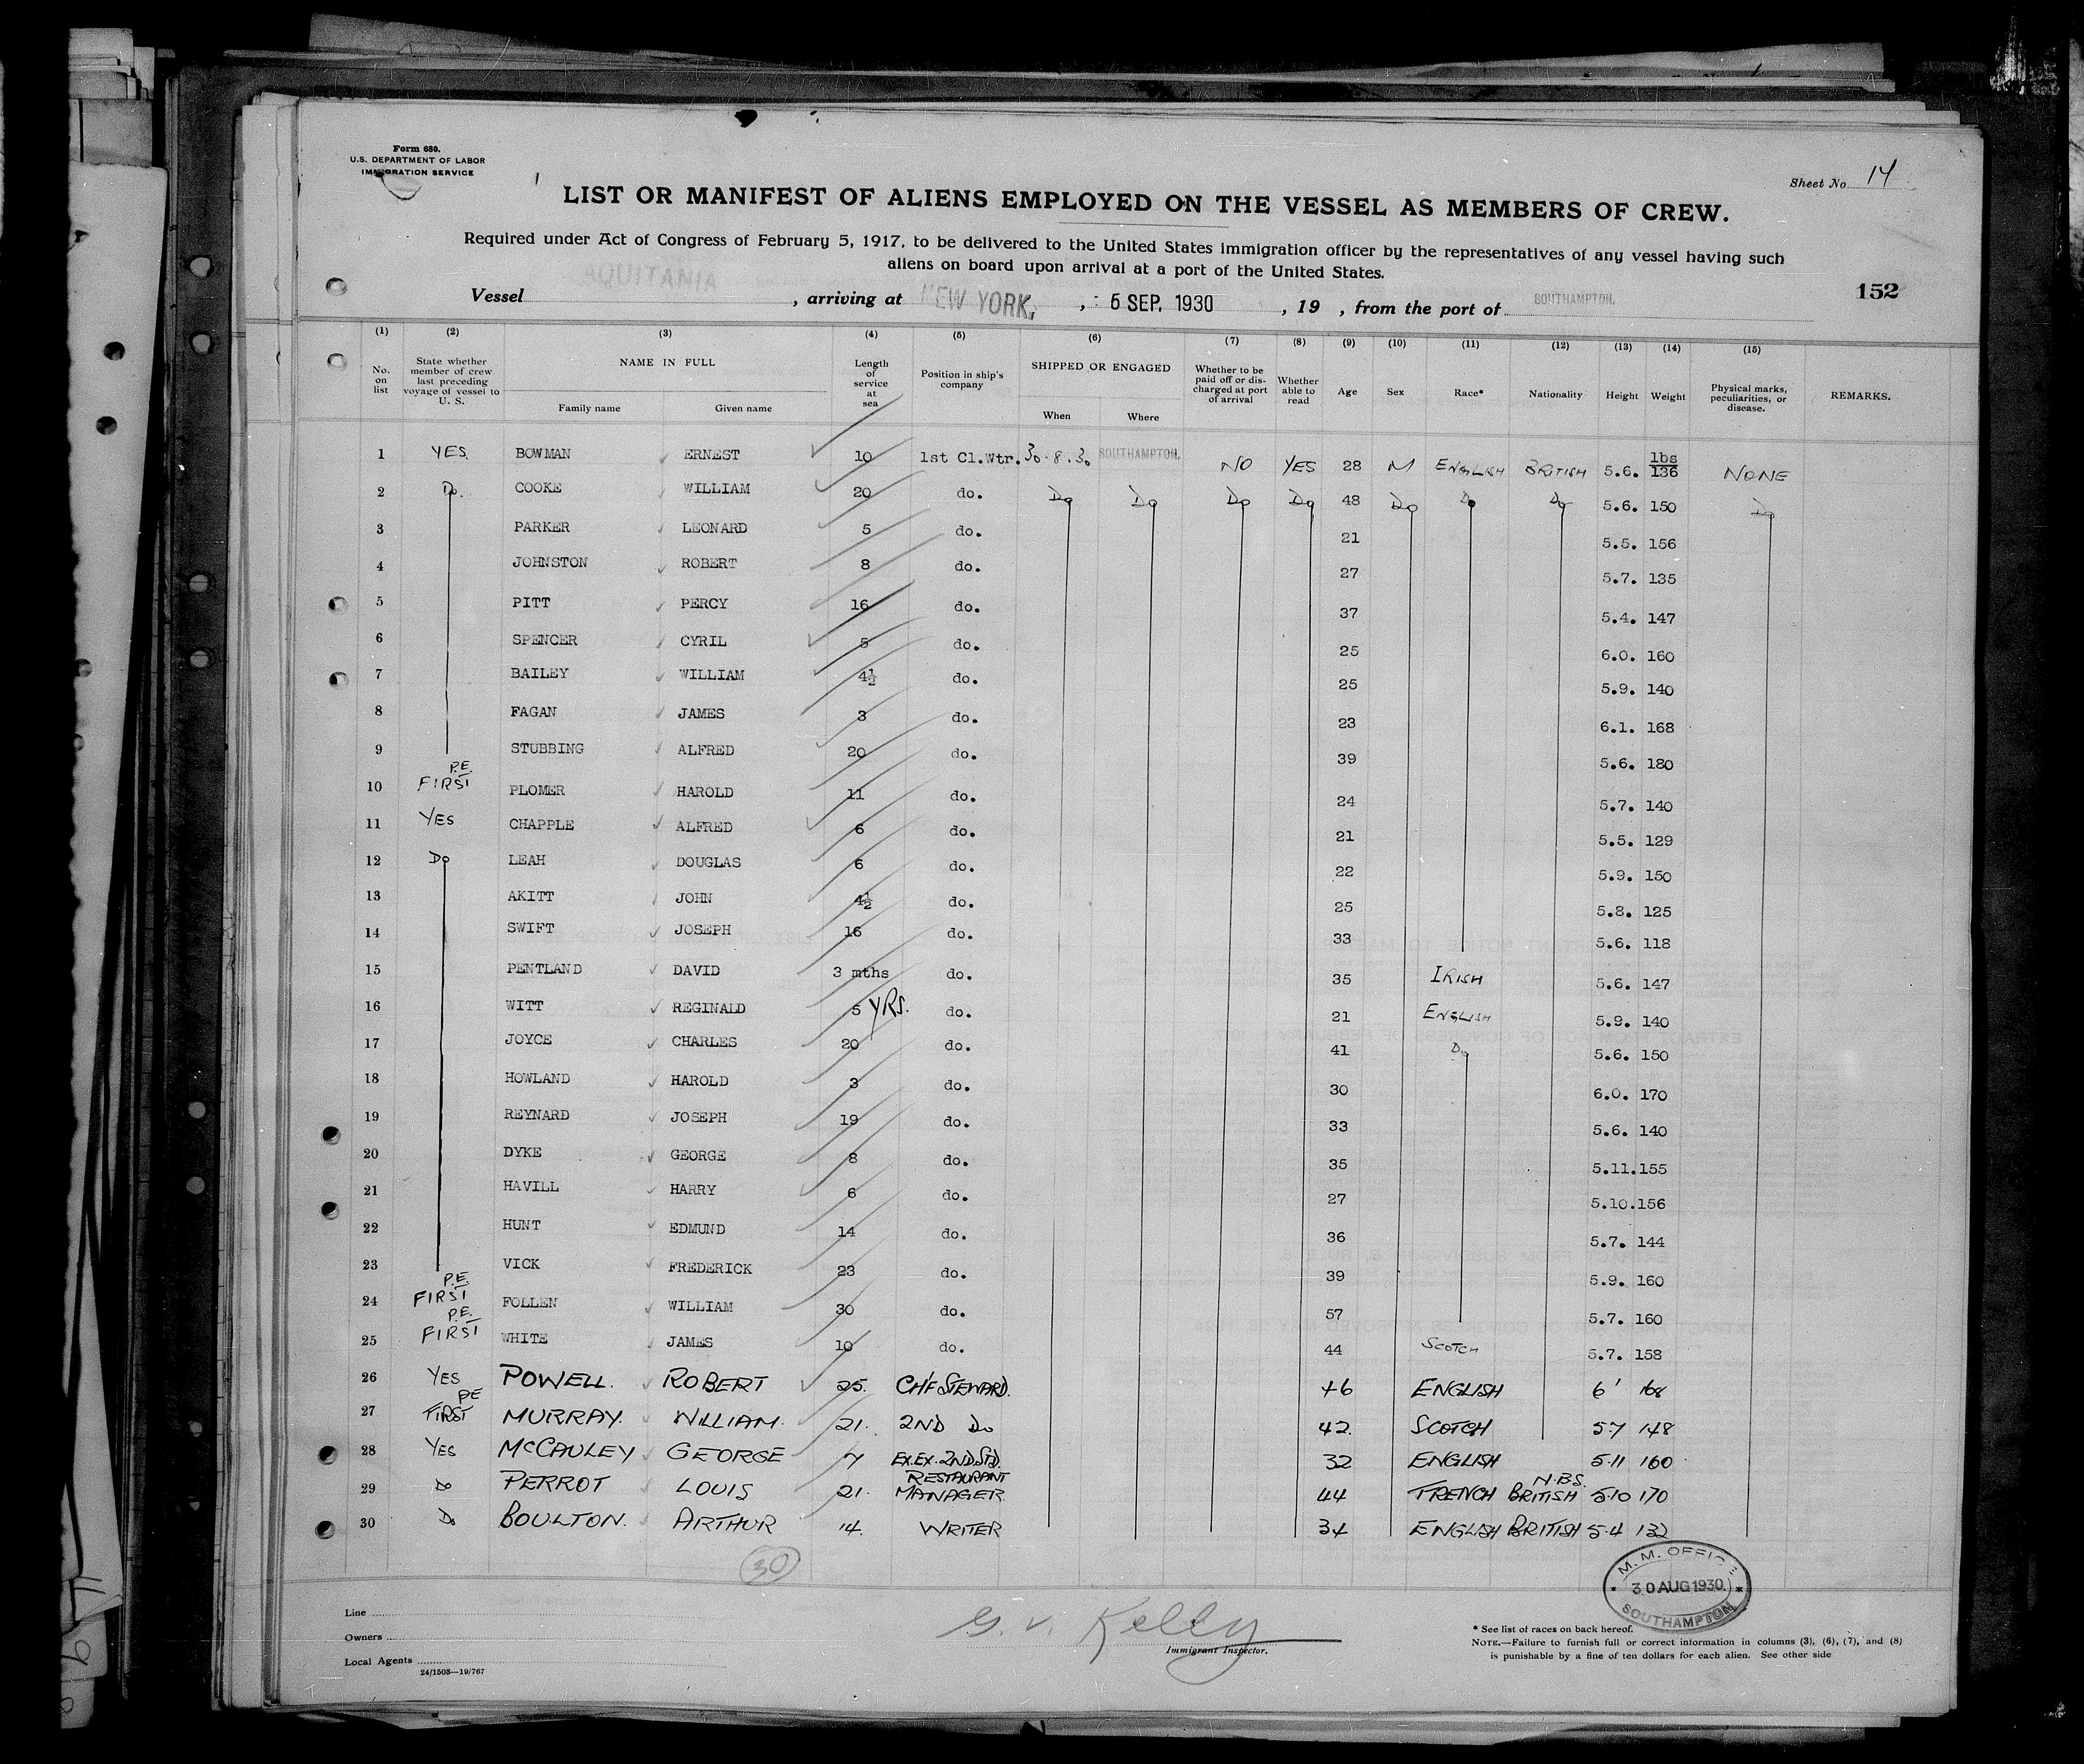 Form 680.
U.S. DEPARTMENT OF LABOR
IMMIGRATION SERVICE
Sheet No. 14
LIST OR MANIFEST OF ALIENS EMPLOYED ON THE VESSEL AS MEMBERS OF CREW.
Required under Act of Congress of February 5, 1917, to be delivered to the United States immigration officer by the representatives of any vessel having such
aliens on board upon arrival at a port of the United States.
Vessel AQUITANIA, arriving at NEW YORK, 5 SEP. 1930, 19 , from the port of SOUTHAMPTON.
152
(1) (2) (3) (4) (5) (6) (7) (8) (9) (10) (11) (12) (13) (14) (15)
No. on list State whether member of crew last preceding voyage of vessel to U. S. NAME IN FULL Family name Given name Length of service at sea Position in ship's company SHIPPED OR ENGAGED When Where Whether to be paid off or discharged at port of arrival Whether able to read Age Sex Race* Nationality Height Weight Physical marks, peculiarities, or disease. REMARKS.
1 YES BOWMAN ERNEST 10 1st Cl.Wtr. 30.8.30 SOUTHAMPTON. NO YES 28 M ENGLISH BRITISH 5.6. lbs 136 NONE
2 Do. COOKE WILLIAM 20 do. Do Do Do Do 48 Do Do Do 5.6. 150 Do
3 PARKER LEONARD 5 do. 21 5.5. 156
4 JOHNSTON ROBERT 8 do. 27 5.7. 135
5 PITT PERCY 16 do. 37 5.4. 147
6 SPENCER CYRIL 5 do. 25 6.0. 160
7 BAILEY WILLIAM 4½ do. 25 5.9. 140
8 FAGAN JAMES 3 do. 23 6.1. 168
9 STUBBING ALFRED 20 do. 39 5.6. 180
10 P.E. FIRST PLOMER HAROLD 11 do. 24 5.7. 140
11 YES CHAPPLE ALFRED 6 do. 21 5.5. 129
12 Do LEAH DOUGLAS 6 do. 22 5.9. 150
13 AKITT JOHN 4½ do. 25 5.8. 125
14 SWIFT JOSEPH 16 do. 33 5.6. 118
15 PENTLAND DAVID 3 mths do. 35 IRISH 5.6. 147
16 WITT REGINALD 5 YRS. do. 21 ENGLISH 5.9. 140
17 JOYCE CHARLES 20 do. 41 Do 5.6. 150
18 HOWLAND HAROLD 3 do. 30 6.0. 170
19 REYNARD JOSEPH 19 do. 33 5.6. 140
20 DYKE GEORGE 8 do. 35 5.11. 155
21 HAVILL HARRY 6 do. 27 5.10. 156
22 HUNT EDMUND 14 do. 36 5.7. 144
23 VICK FREDERICK 23 do. 39 5.9. 160
24 P.E. FIRST FOLLEN WILLIAM 30 do. 57 5.7. 160
25 P.E. FIRST WHITE JAMES 10 do. 44 SCOTCH 5.7. 158
26 YES POWELL. ROBERT 25. CH'F STEWARD. 46 ENGLISH 6' 168
27 PE FIRST MURRAY. WILLIAM. 21. 2ND Do 42. SCOTCH 5.7 148
28 YES McCAULEY GEORGE 7 EX.EX.2ND.STD. 32 ENGLISH 5.11 160
29 Do PERROT LOUIS 21. RESTAURANT MANAGER. 44 FRENCH N.B.S. BRITISH 5.10 170
30 Do BOULTON. ARTHUR 14. WRITER 34 ENGLISH BRITISH 5.4 132
30
M. M. OFFICE
30 AUG 1930
SOUTHAMPTON
Line
Owners
Local Agents
24/1503—19/767
G. V. Kelly
Immigrant Inspector.
* See list of races on back hereof.
NOTE.—Failure to furnish full or correct information in columns (3), (6), (7), and (8)
is punishable by a fine of ten dollars for each alien. See other side